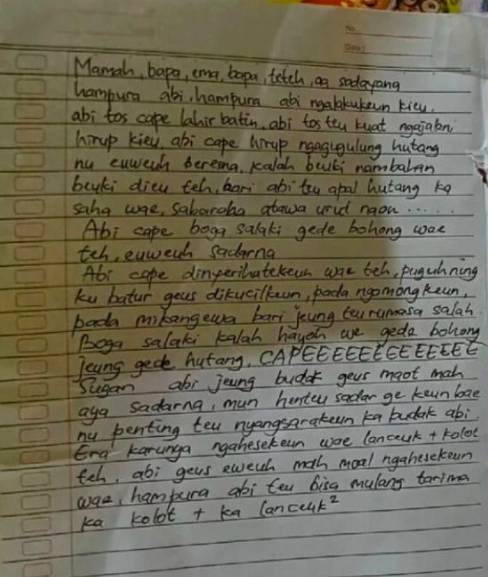 No.
Date:
Mamah, bapa, ema, bapa, teteh, aa sadayana
hampura abi, hampura abi ngalakukeun kieu.
abi tos cape lahir batin, abi tos teu kuat ngajalani
hirup kieu, abi cape hirup ngagugulung hutang
nu euweuh berena, kalah beuki nambahan
beuki dieu teh, bari abi teu apal hutang ka
saha wae, sabaraha atawa urut naon .....
Abi cape boga salaki gede bohong wae
teh, euweuh sadarna
Abi cape dinyerihatekeun wae teh, puguh ning
ku batur geus dikucilkeun, pada ngomongkeun,
pada mikangewa bari jeung teu rumasa salah.
Boga salaki kalah hayoh we gede bohong
jeung gede hutang, CAPEEEEEEEEEEEEEE
Sugan abi jeung budak geus maot mah
aya sadarna, mun henteu sadar ge keun bae
nu penting teu nyangsarakeun ka budak abi
Era karunya ngahesekeun wae lanceuk + kolot
teh, abi geus euweuh mah moal ngahesekeun
wae, hampura abi teu bisa mulang tarima
ka kolot + ka lanceuk²